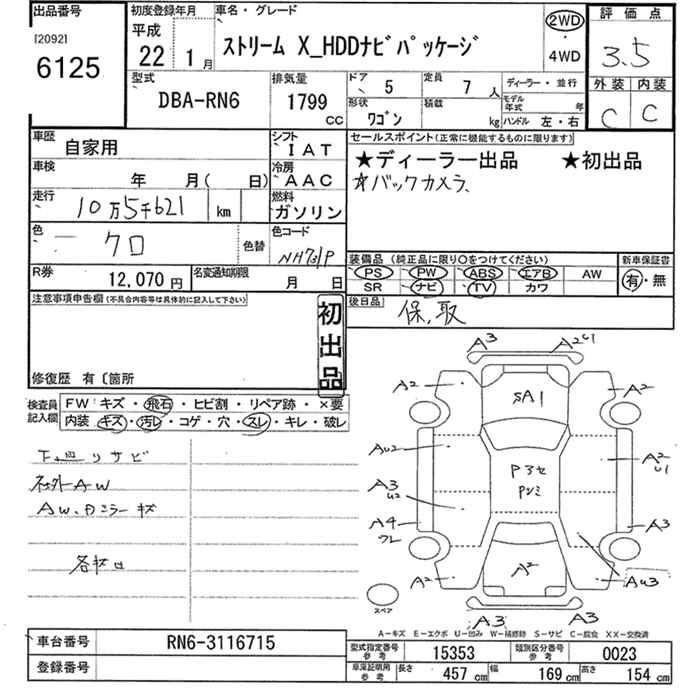 出品番号
[2092]
6125
初度登録年月
平成
22 1月
車名・グレード
ストリーム X_HDDナビパッケージ
2WD
・
4WD
評価点
3.5
外装 内装
C C
型式
DBA-RN6
排気量
1799
cc
ドア 5
定員 7人
ディーラー・並行
形状
ワゴン
積載
kg
モデル年式 年
ハンドル 左・右
車歴
自家用
シフト
IAT
車検
年 月( 日)
冷房
AAC
走行
10万5千621 km
燃料
ガソリン
色
クロ
色替
色コード
NH731P
R券
12,070円
名変通知期限
月 日
セールスポイント(正常に機能するものに限ります)
★ディーラー出品 ★初出品
☆バックカメラ、
装備品 (純正品に限り○をつけてください)
PS PW ABS エアB AW
SR ナビ TV カワ
新車保証書
有・無
後日品
保、取
注意事項申告欄(不具合内容等は具体的に記入して下さい)
初出品
修復歴 有〔箇所
検査員記入欄
FW キズ・飛石・ヒビ割・リペア跡・×要
内装 キズ・汚レ・コゲ・穴・スレ・キレ・破レ
下廻リサビ
社外AW
AW、Dミラーキズ
A3
A2U1
A2
SA1
A2
AU2
A2
U1
A3
U2
Pアセ
Pシミ
A4
ワレ
A3
A2
A2
AU3
A3
A3
スペア
A-キズ E-エクボ U-凹み W-補修跡 S-サビ C-腐食 XX-交換済
車台番号
RN6-3116715
登録番号
型式指定番号
参考
15353
類別区分番号
参考
0023
車庫証明用
参考
長さ 457cm
幅 169cm
高さ 154cm